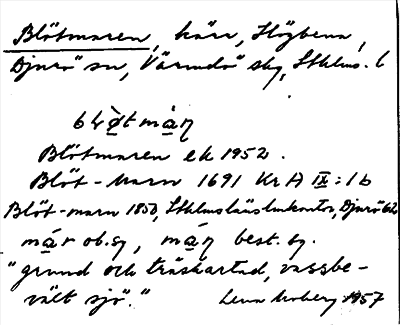 Blötmaren, kärr, Högbena,
Djurö sn, Värmdö skg, Sthlms. l
blø̀tmaɳ
Blötmaren ek 1952.
Blöt-marn 1691 Kr A IX:1b
Blöt-marn 1850, Sthlmsläslmkontor, Djurö 62
mar ob.sg, maɳ best. sg.
"grund och träskartad, vassbe-
växt sjö." Lena Moberg 1957